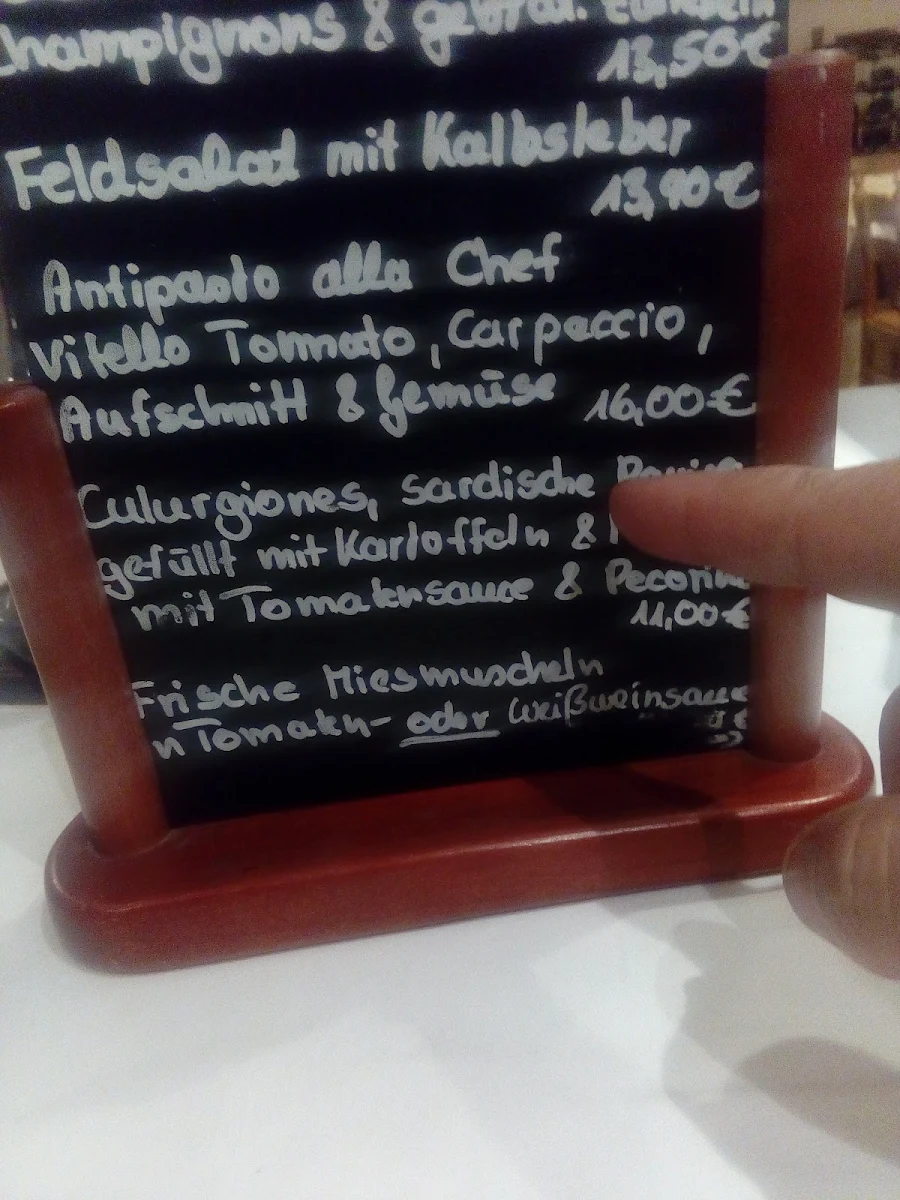 Champignons & gebrat.
13,50€
Feldsalat mit Kalbsleber
13,90€
Antipasto alla Chef
Vitello Tonnato, Carpaccio,
Aufschnitt & Gemüse 16,00€
Culurgiones, sardische
gefüllt mit Kartoffeln &
mit Tomatensauce & Pecorino
11,00€
Frische Miesmuscheln
in Tomaten- oder Weißweinsauce